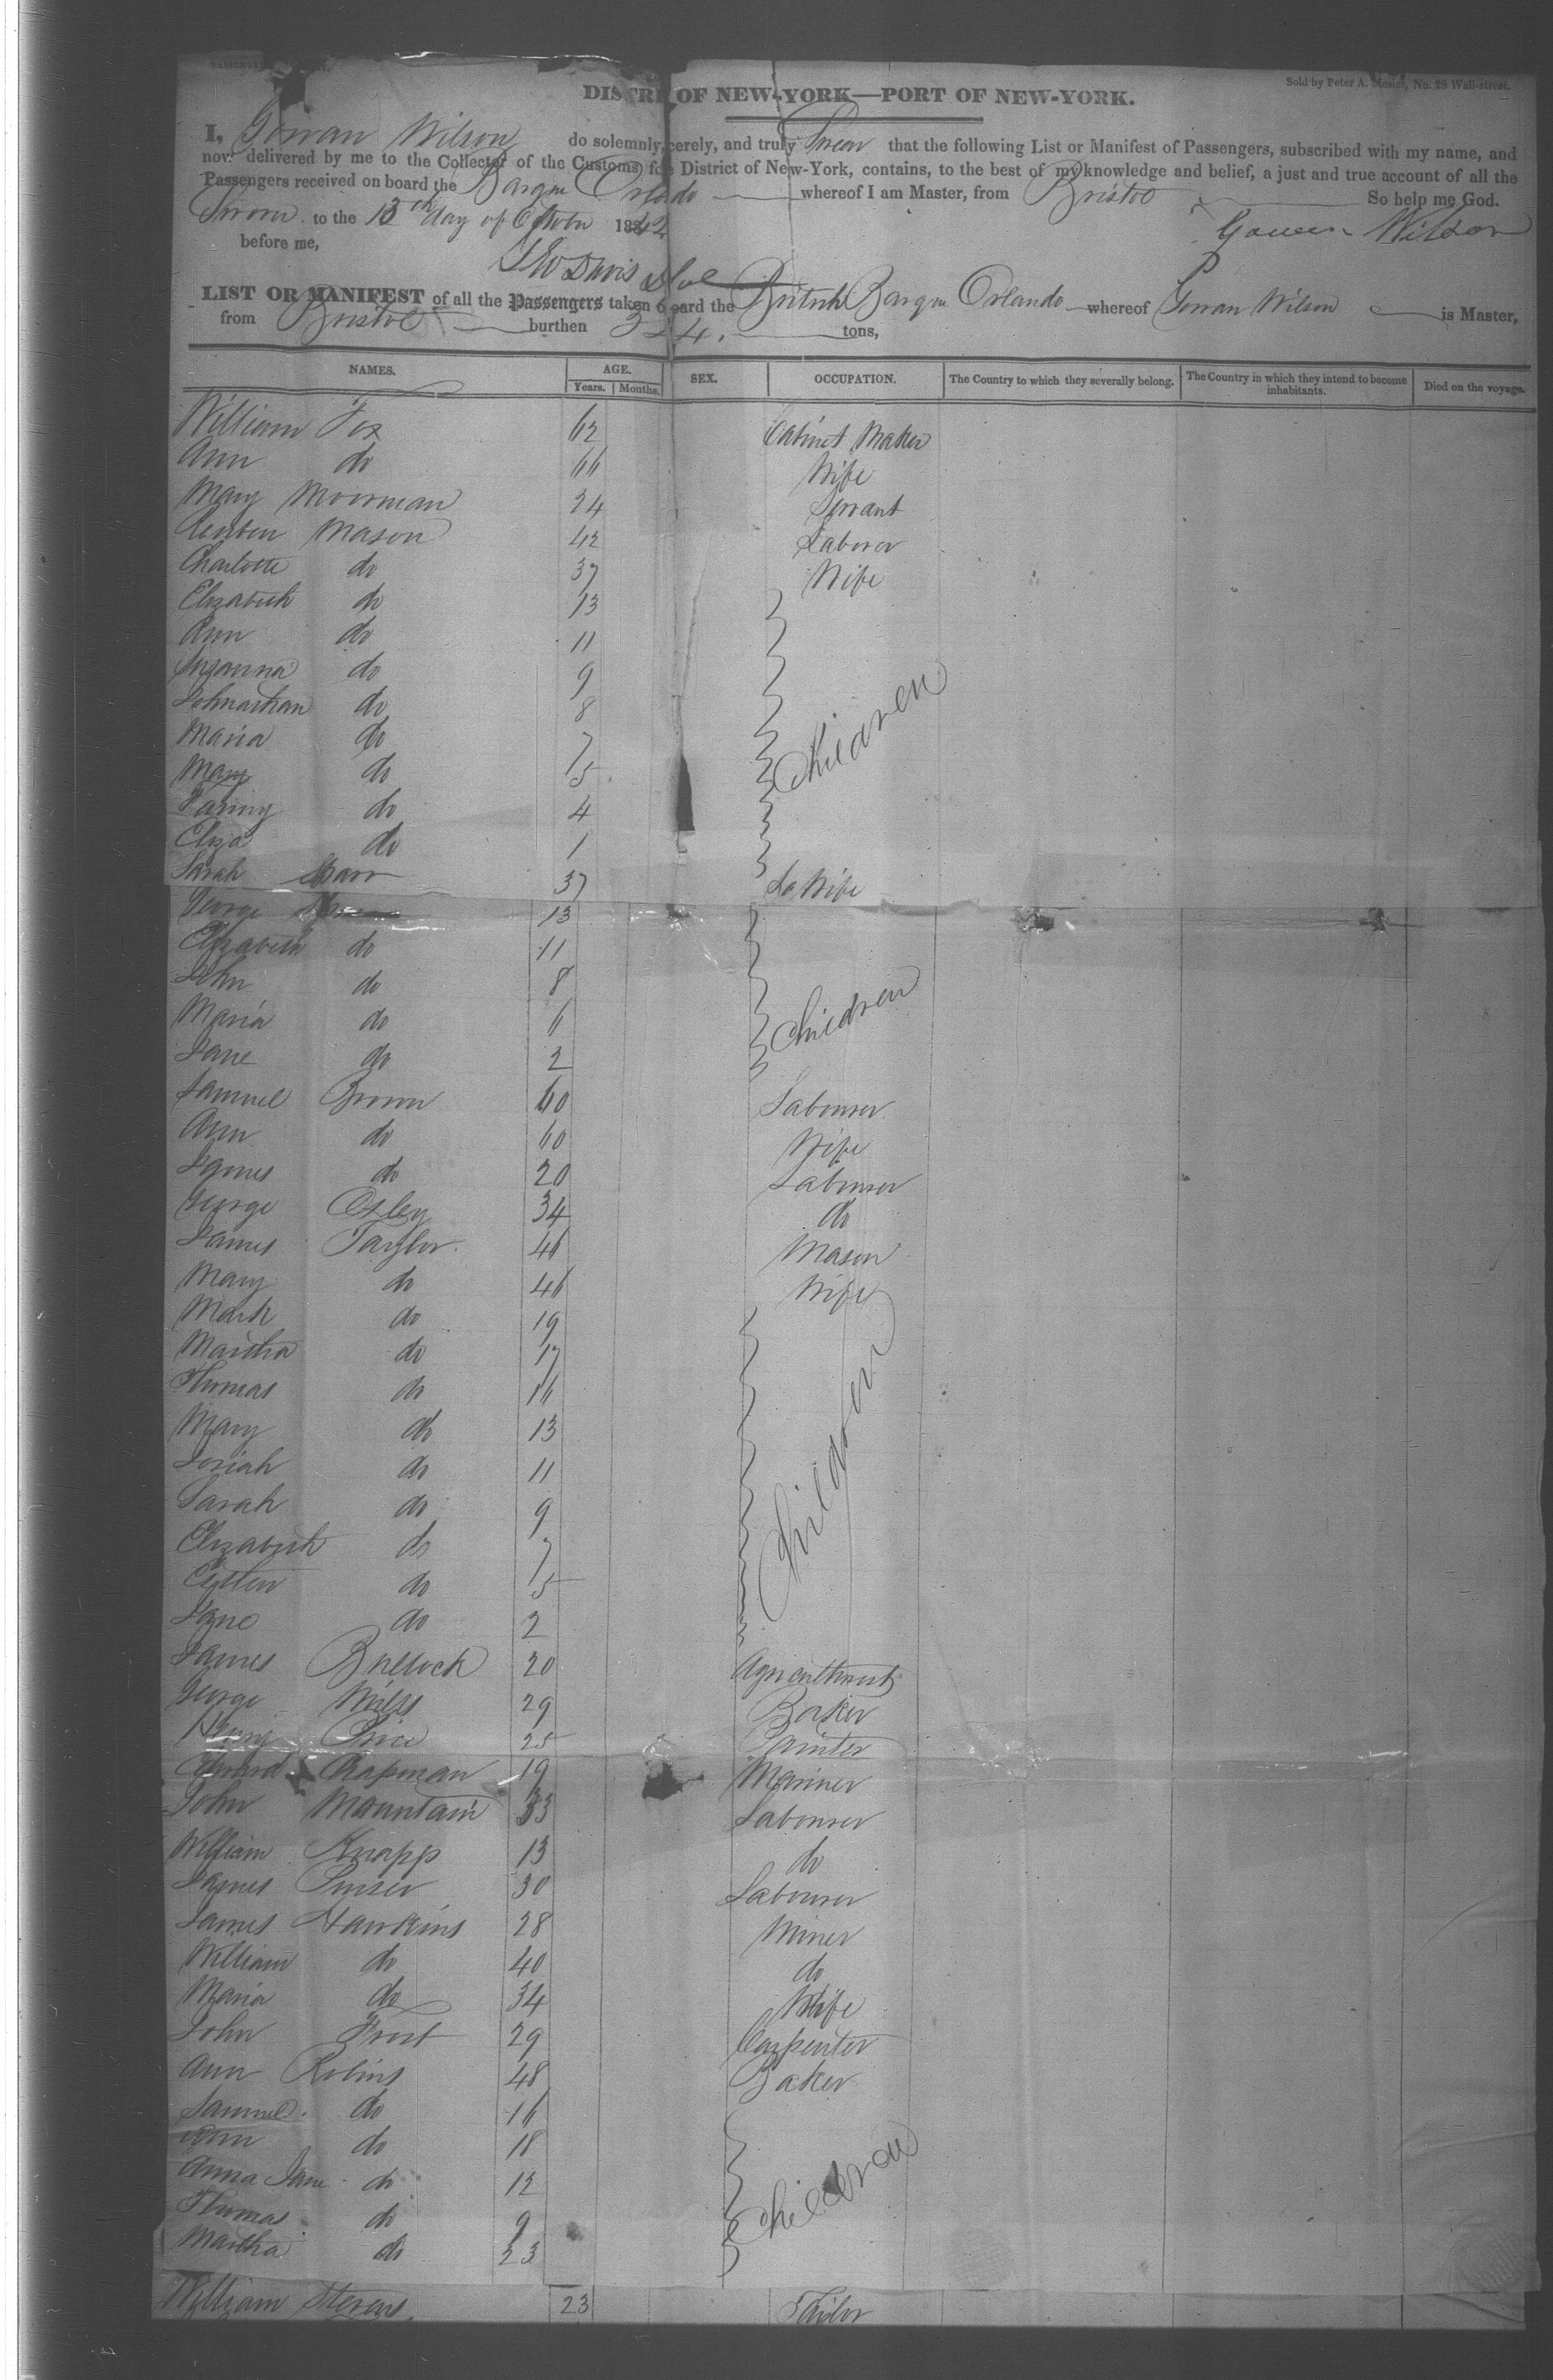 Sold by Peter A. Mesier, No. 28 Wall-street.
DISTRI OF NEW-YORK—PORT OF NEW-YORK.
I, Gowan Wilson do solemnly, cerely, and truly Swear that the following List or Manifest of Passengers, subscribed with my name, and
now delivered by me to the Collector of the Customs for District of New-York, contains, to the best of my knowledge and belief, a just and true account of all the
Passengers received on board the Barque Orlando whereof I am Master, from Bristol So help me God.
Sworn to the 13th day of October 1842 Gowan Wilson
before me,
Davis
LIST OR MANIFEST of all the Passengers taken board the British Barque Orlando whereof Gowan Wilson is Master,
from Bristol burthen 324. tons,
NAMES. AGE. SEX. OCCUPATION. The Country to which they severally belong. The Country in which they intend to become inhabitants. Died on the voyage.
Years. Months.
William Fox 62 Cabinet Maker
Ann do 66 Wife
Mary Moorman 24 Servant
Reuben Mason 42 Laborer
Charlotte do 37 Wife
Elizabeth do 13
Ann do 11
Susanna do 9
Johnathan do 8 Children
Maria do 7
Mary do 5
do 4
Eliza do 1
Sarah 37 Wife
George 13
Elizabeth do 11
John do 8 Children
Maria do 6
Jane do 2
Samuel Brown 60 Labourer
Ann do 60 Wife
James do 20 Labourer
George Oxley 34 do
James Taylor 46 Mason
Mary do 46 Wife
Mark do 19
Martha do 17
Thomas do 16
Mary do 13 Children
Josiah do 11
Sarah do 9
Elizabeth do 7
do 5
Jane do 2
James Bullock 20 Agriculturist
George Mills 29 Baker
Henry Price 25 Painter
Chapman 19 Mariner
John Mountain 33 Labourer
William Knapp 13 do
James Purser 30 Labourer
James Hawkins 28 Miner
William do 40 do
Maria do 34 Wife
John Frost 29 Carpenter
Ann Robins 48 Baker
Samuel do 16
Ann do 18
Anna Jane do 12 Children
Thomas do 9
Martha do 23
William Stevens 23 Tailor